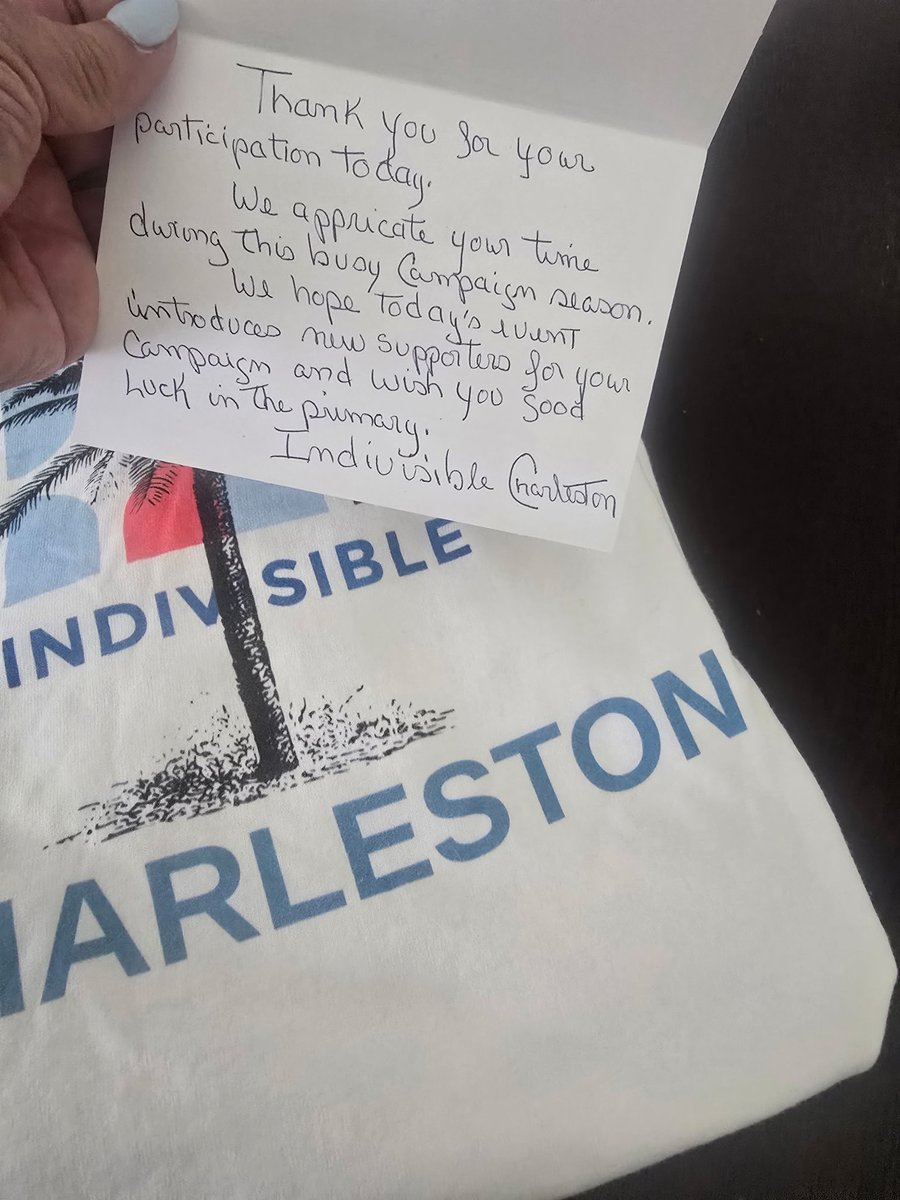 Thank you for your
participation today.
We appricate your time
during this busy Campaign season.
We hope today's event
introduces new supporters for your
Campaign and wish you good
luck in the primary.
Indivisible Charleston
INDIVISIBLE
HARLESTON